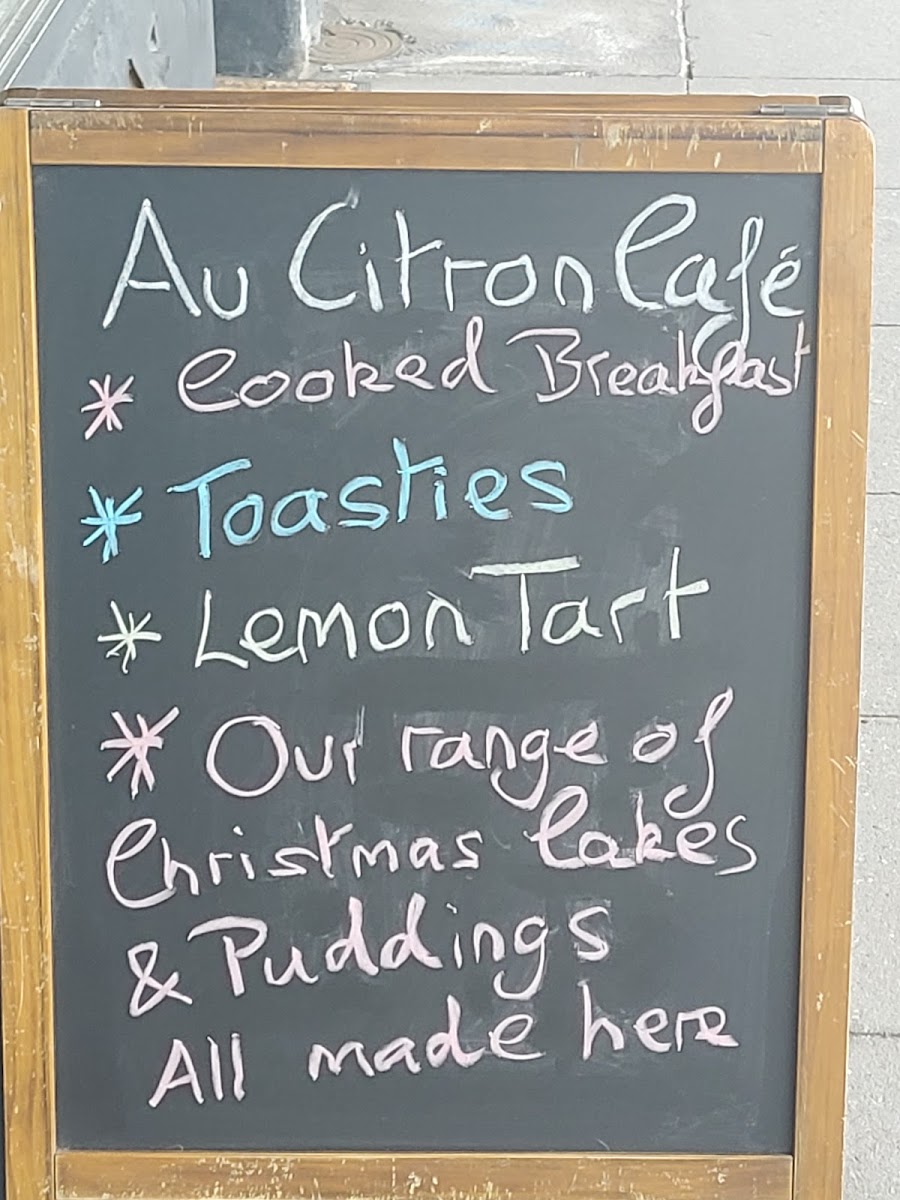 Au Citron Café
* Cooked Breakfast
* Toasties
* Lemon Tart
* Our range of
Christmas Cakes
& Puddings
All made here